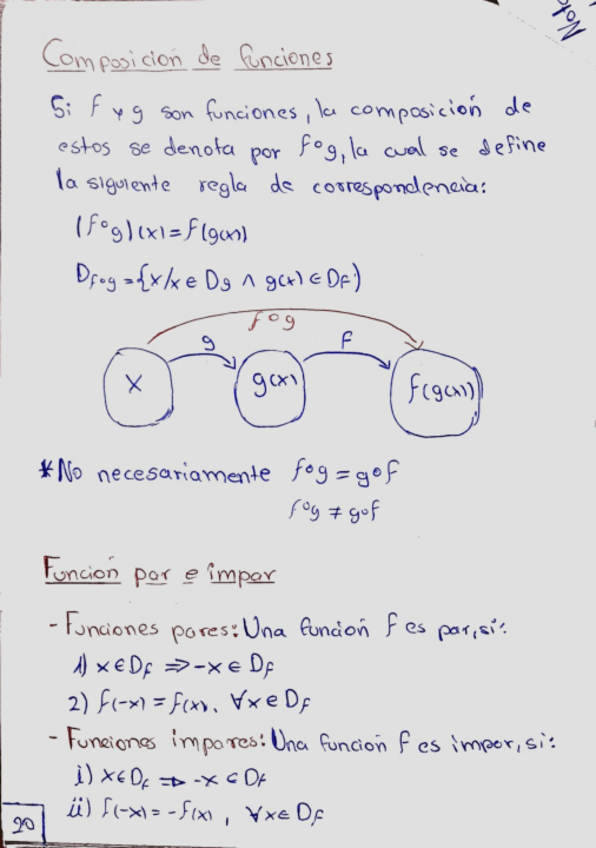 Nota
Composición de funciones
Si f y g son funciones, la composición de
estos se denota por f∘g, la cual se define
la siguiente regla de correspondencia:
(f∘g)(x)=f(g(x))
Df∘g={x/x∈Dg ∧ g(x)∈Df}
f∘g
g f
x g(x) f(g(x))
*No necesariamente f∘g=g∘f
f∘g≠g∘f
Función par e impar
-Funciones pares: Una función f es par, si:
1) x∈Df ⇒ -x∈Df
2) f(-x)=f(x), ∀x∈Df
- Funciones impares: Una función f es impar, si:
i) x∈Df ⇒ -x∈Df
ii) f(-x)=-f(x), ∀x∈Df
20